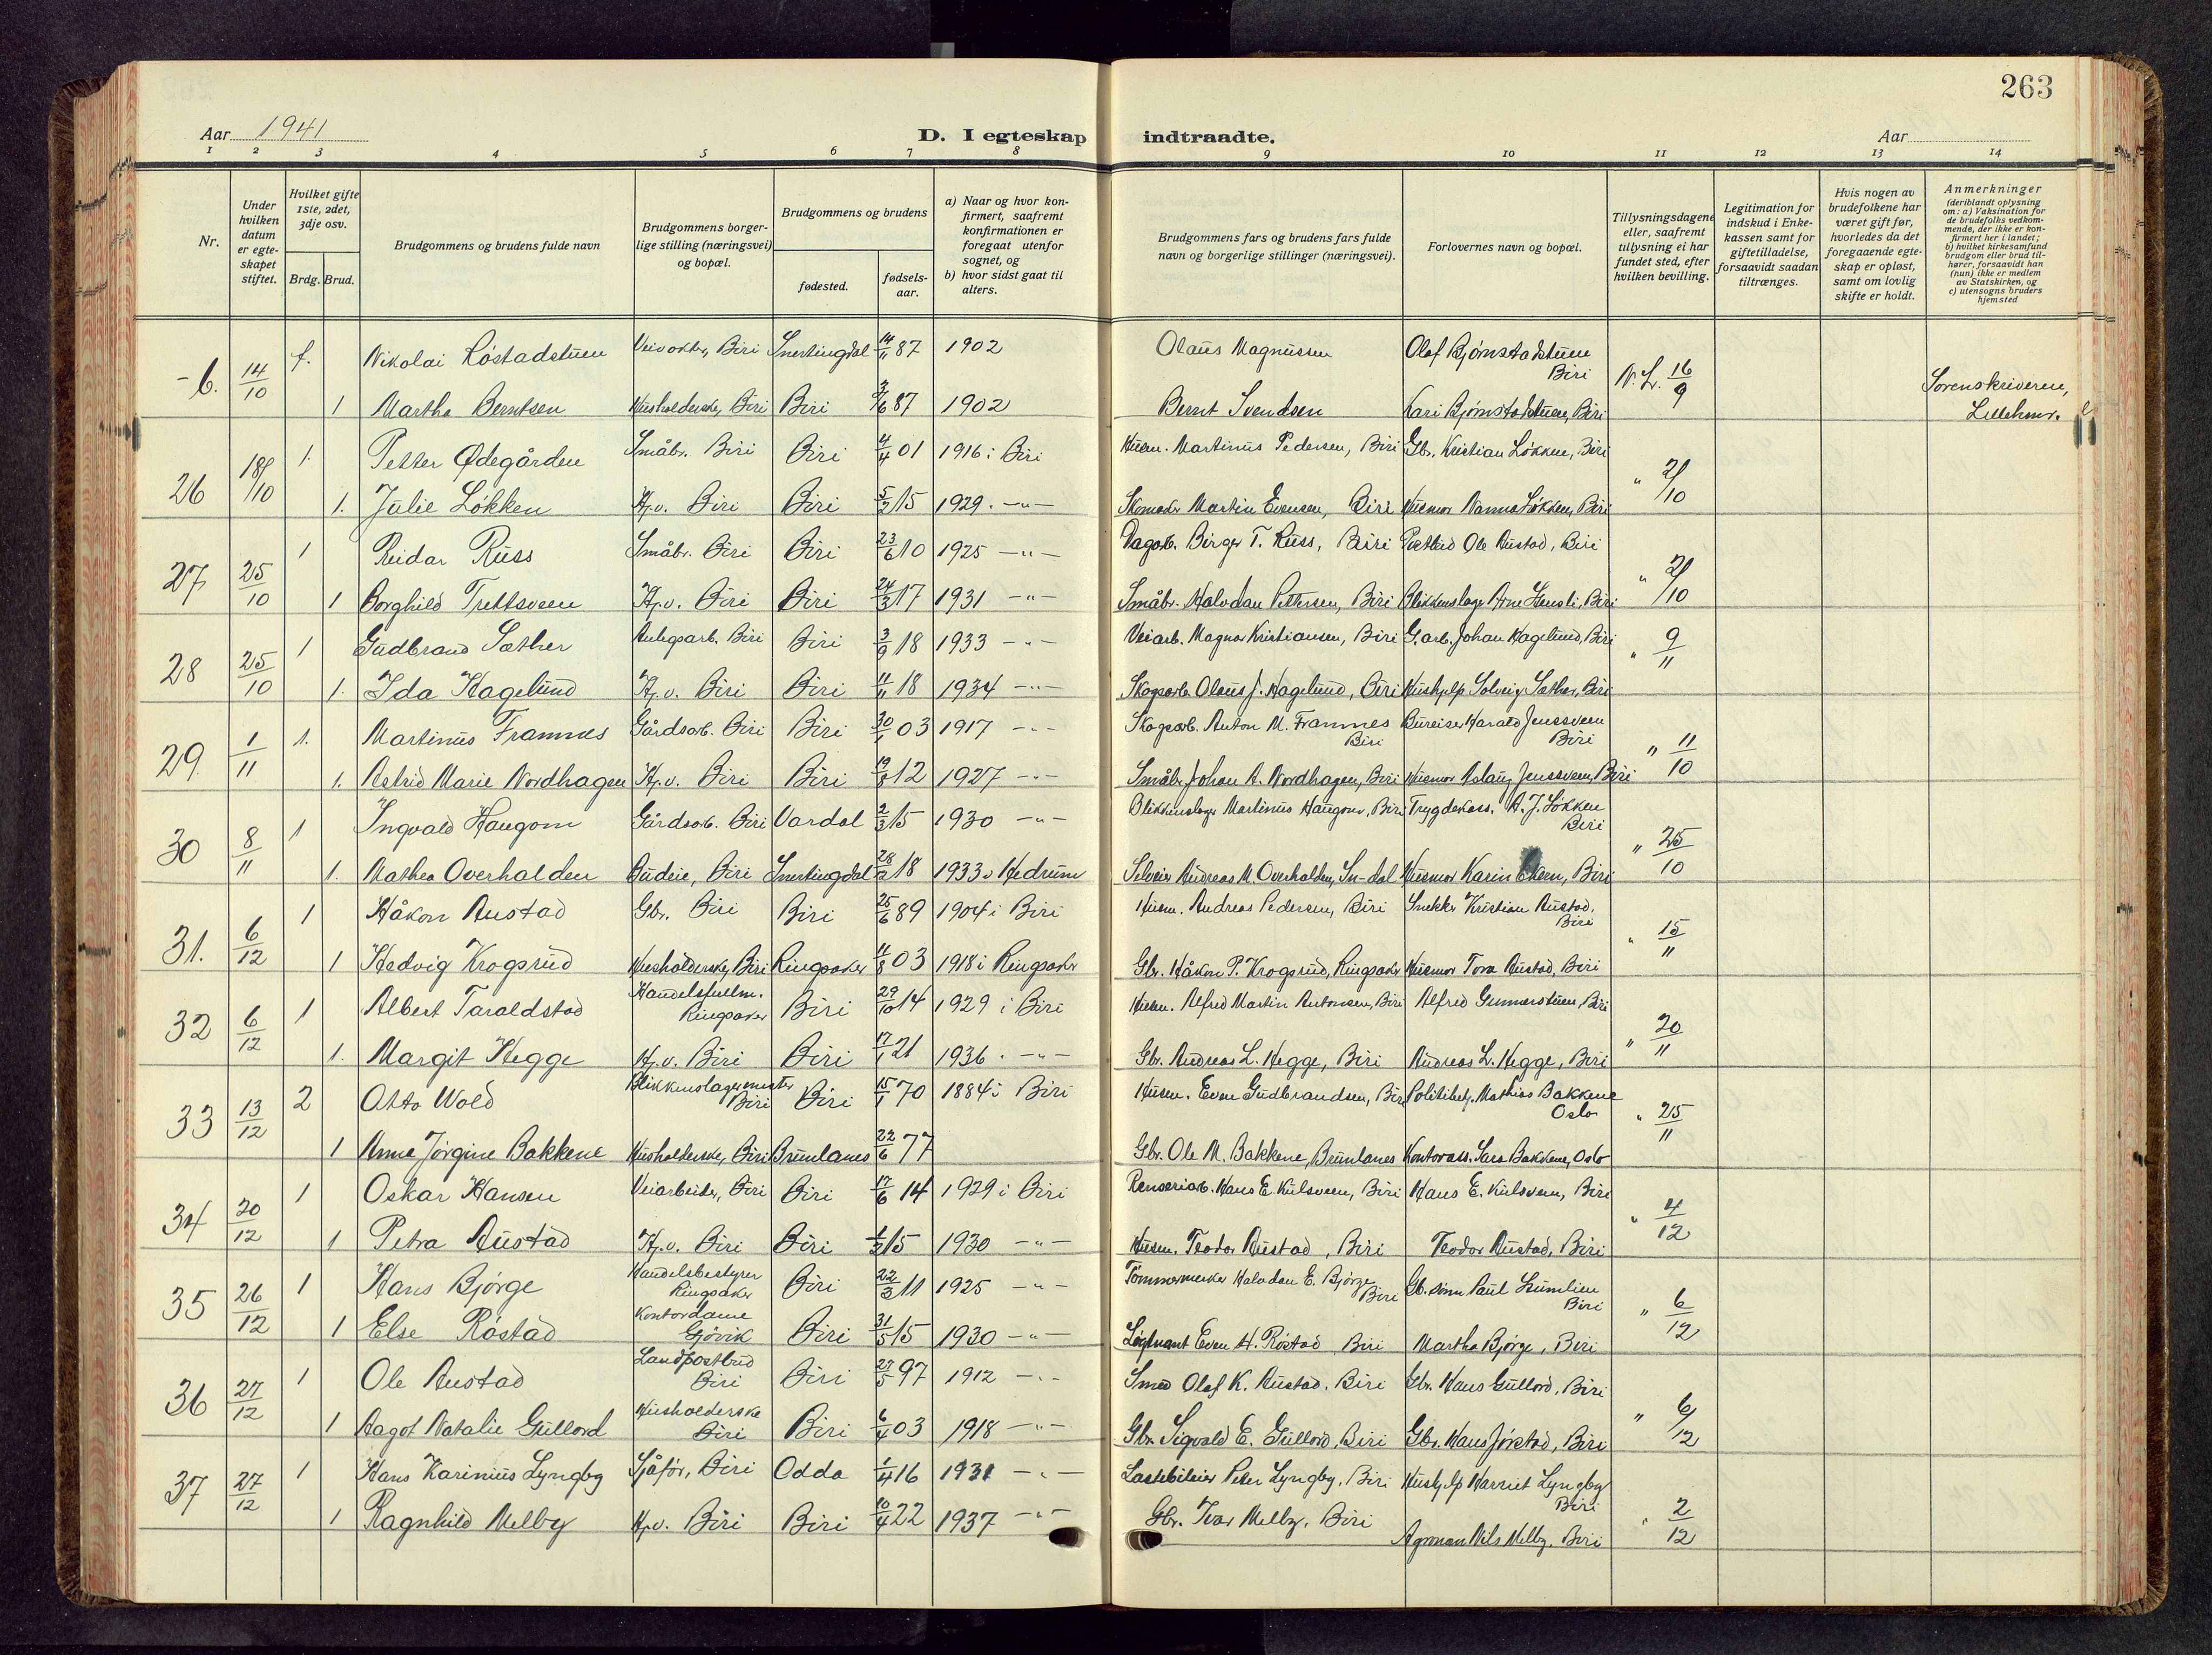 263
Aar 1941
D. I egteskap indtraadte.
Aar
1 2 3 4 5 6 7 8 9 10 11 12 13 14
Nr.
Under hvilken datum er egteskapet stiftet.
Hvilket gifte 1ste, 2det, 3dje osv.
Brdg. Brud.
Brudgommens og brudens fulde navn
Brudgommens borgerlige stilling (næringsvei) og bopæl.
Brudgommens og brudens
fødested.
fødselsaar.
a) Naar og hvor konfirmert, saafremt konfirmationen er foregaat utenfor sognet, og
b) hvor sidst gaat til alters.
Brudgommens fars og brudens fars fulde navn og borgerlige stillinger (næringsvei).
Forlovernes navn og bopæl.
Tillysningsdagene eller, saafremt tillysning ei har fundet sted, efter hvilken bevilling.
Legitimation for indskud i Enkekassen samt for giftetilladelse, forsaavidt saadan tiltrænges.
Hvis nogen av brudefolkene har været gift før, hvorledes da det foregaaende egteskap er opløst, samt om lovlig skifte er holdt.
Anmerkninger (deriblandt oplysning om: a) Vaksination for de brudefolks vedkommende, der ikke er konfirmert her i landet; b) hvilket kirkesamfund brudgom eller brud tilhører, forsaavidt han (hun) ikke er medlem av Statskirken, og c) utensogns bruders hjemsted
-b. 14/10 f. Nikolai Røstadstuen Veivokter, Biri Snertingdal 14/11 87 1902 Olaus Magnussen Olaf Bjørnstadstuen Biri N.L. 16/9 Sorenskriveren, Lilleham.
1 Martha Berntsen Husholderske, Biri Biri 3/6 87 1902 Bernt Svendsen Kari Bjørnstadstuen, Biri
26 18/10 1. Petter Ødegården Småbr. Biri Biri 4/4 01 1916 i Biri Husm. Martinus Pedersen, Biri Gbr. Kristian Løkken, Biri " 2/10
1. Julie Løkken Hj.v. Biri Biri 15 1929. -"- Skomaker Martin Evensen, Biri Husmor Nanna Løkken, Biri
27 25/10 1 Reidar Russ Småbr. Biri Biri 23/6 10 1925 -"- Dagarb. Birger T. Russ, Biri Postbud Ole Austad, Biri " 2/10
1 Borghild Trettsveen Hj.v. Biri Biri 24/3 17 1931 -"- Småbr. Halvdan Pettersen, Biri Blikkenslager Arne Biri
28 25/10 1 Gudbrand Sæther Anlegsarb. Biri Biri 3/9 18 1933 -"- Veiarb. Magnar Kristiansen, Biri G.arb. Johan Hagelund, Biri " 9/11
1. Ida Hagelund Hj.v. Biri Biri 11/11 18 1934 -"- Skogsarb. Olaus J. Hagelund, Biri Hushjelp Solveig Sæther, Biri
29. 1/11 1. Martinus Framnes Gårdsarb. Biri Biri 30/1 03 1917 -"- Skogsarb. Anton M. Framnes Biri Bureiser Harald Jenssveen Biri " 11/10
1. Astrid Marie Nordhagen Hj.v. Biri Biri 19/8 12 1927 -"- Småbr. Johan A. Nordhagen, Biri Husmor Aslaug Jenssveen, Biri
30 8/11 1 Ingvald Haugom Gårdsarb. Biri Vardal 2/3 15 1930 -"- Blikkenslager Martinus Haugom, Biri Trygdekass. A. J. Løkken Biri " 25/10
1. Mathea Overhalden Budeie, Biri Snertingdal 28/2 18 1933 i Hedrum Selveier Andreas M. Overhalden, Sn-dal Husmor Karin Ekern, Biri
31. 6/12 1 Håkon Austad Gbr. Biri Biri 25/6 89 1904 i Biri Husm. Andreas Pedersen, Biri Snekker Kristian Austad, Biri " 15/11
1 Hedvig Krogsrud Husholderske, Biri Ringsaker 11/8 03 1918 i Ringsaker Gbr. Håkon P. Krogsrud, Ringsaker Husmor Tora Austad, Biri
32 6/12 1 Albert Taraldstad Handelsfullm. Ringsaker Biri 29/10 14 1929 i Biri Husm. Alfred Martin Antonsen, Biri Alfred Gunnerstuen, Biri " 20/11
1. Margit Hegge Hj.v. Biri Biri 17/1 21 1936. -"- Gbr. Andreas L. Hegge, Biri Andreas L. Hegge, Biri
33 13/12 2 Otto Wold Blikkenslagermester Biri Biri 15/1 70 1884 i Biri Husm. Even Gudbrandsen, Biri Politibetj. Mathias Bakkene Oslo " 25/11
1 Anna Jørgine Bakkene Husholderske, Biri Brunlanes 22/6 77 Gbr. Ole M. Bakkene, Brunlanes Kontorass. Sara Bakkene, Oslo
34 20/12 1 Oskar Hansen Veiarbeider, Biri Biri 17/6 14 1929 i Biri Renseriarb. Hans E. Kulsveen, Biri Hans E. Kulsveen, Biri " 4/12
1 Petra Austad Hj.v. Biri Biri 15 1930 -"- Husm. Teodor Austad, Biri Teodor Austad, Biri
35 26/12 1 Hans Bjørge Handelsbestyrer Ringsaker Biri 22/3 11 1925 -"- Tømmermerker Halvdan E. Bjørge Biri Gb. sønn Paul Lumlien Biri " 6/12
1 Else Røstad Kontordame Gjøvik Biri 31/5 15 1930 -"- Løytnant Even H. Røstad Biri Martha Bjørge, Biri
36 27/12 1 Ole Austad Landpostbud Biri Biri 27/5 97 1912 -"- Smed Olaf K. Austad, Biri Gbr. Hans Gullord, Biri " 6/12
1 Aagot Natalie Gullord Husholderske Biri Biri 6/4 03 1918 -"- Gbr. Sigvald E. Gullord, Biri Gbr. Hans Jørstad, Biri
37 27/12 1 Hans Karinius Lyngby Sjåfør, Biri Odda 1/4 16 1931 -"- Lastebileier Peder Lyngby, Biri Hushjelp Harriet Lyngby Biri " 2/12
1 Ragnhild Melby Hj.v. Biri Biri 10/4 22 1937 -"- Gbr. Ivar Melby, Biri Agronom Nils Melby, Biri